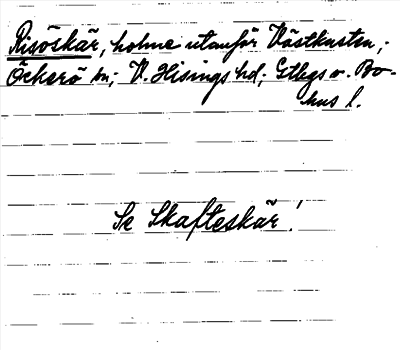 Risöskär, holme utanför Västkusten,
Öckerö sn; V. Hisings hd; Gtbgs o. Bo-
hus l.
Se Skafteskär!